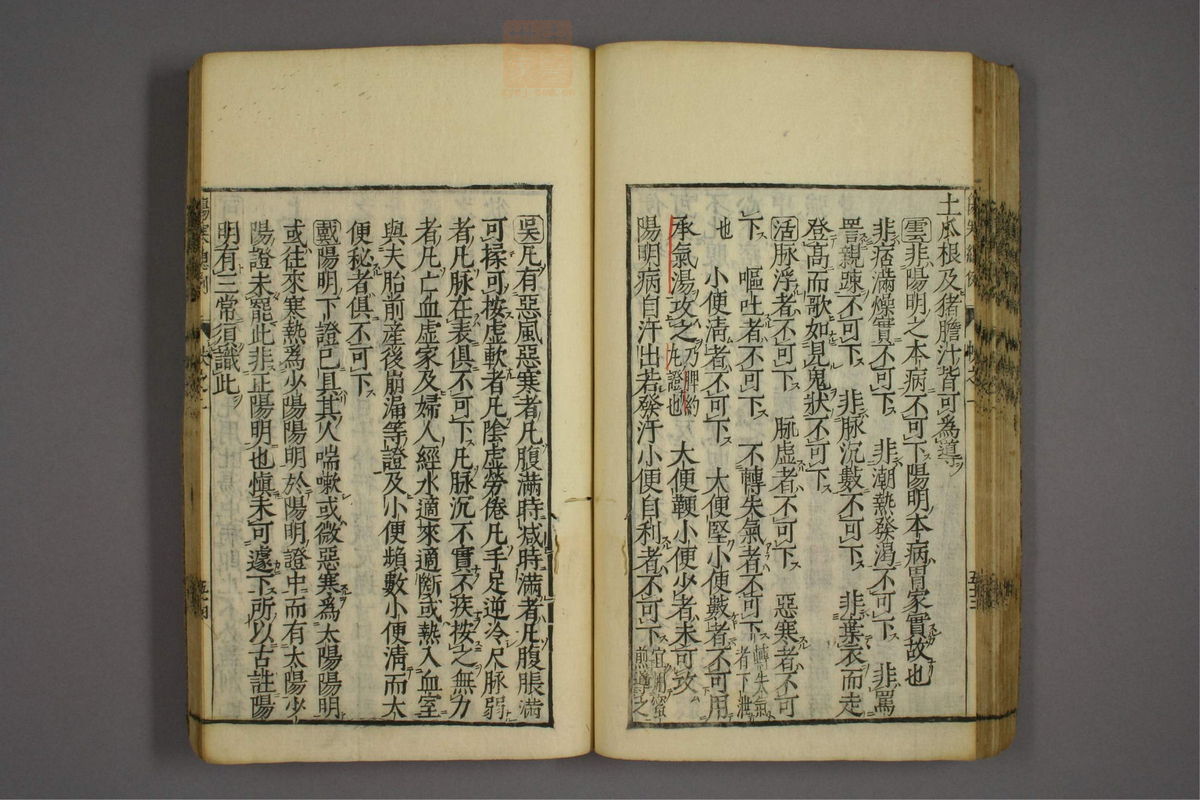 土瓜根及猪膽汁皆可為導
雲非陽明之本病不可下陽明本病胃家實故也
非痞滿燥實不可下　非潮熱發渴不可下　非罵
詈親疎不可下　非脉沉數不可下　非棄衣而走
登高而歌如見鬼狀不可下
活脉浮者不可下　脉虛者不可下　惡寒者不可
下　嘔吐者不可下　不轉失氣者不可下轉失氣者下泄
也　小便淸者不可下　大便堅小便數者不可用
承氣湯攻之乃脾約丸證也　大便鞕小便少者未可攻
陽明病自汗出若發汗小便自利者不可下宜用蜜煎導之
吳凡有惡風惡寒者凡腹滿時减時滿者凡腹脹滿
可揉可按虛軟者凡陰虛勞倦凡手足逆冷尺脉弱
者凡脉在表俱不可下凡脉沉不實不疾按之無力
者凡亡血虛家及婦人經水適來適斷或熱入血室
與夫胎前産後崩漏等證及小便頻數小便淸而大
便秘者俱不可下
戴陽明下證已具其人喘嗽或微惡寒爲太陽陽明
或往來寒熱爲少陽陽明於陽明證中而有太陽少
陽證未罷此非正陽明也愼未可遽下所以古註陽
明有三常須識此